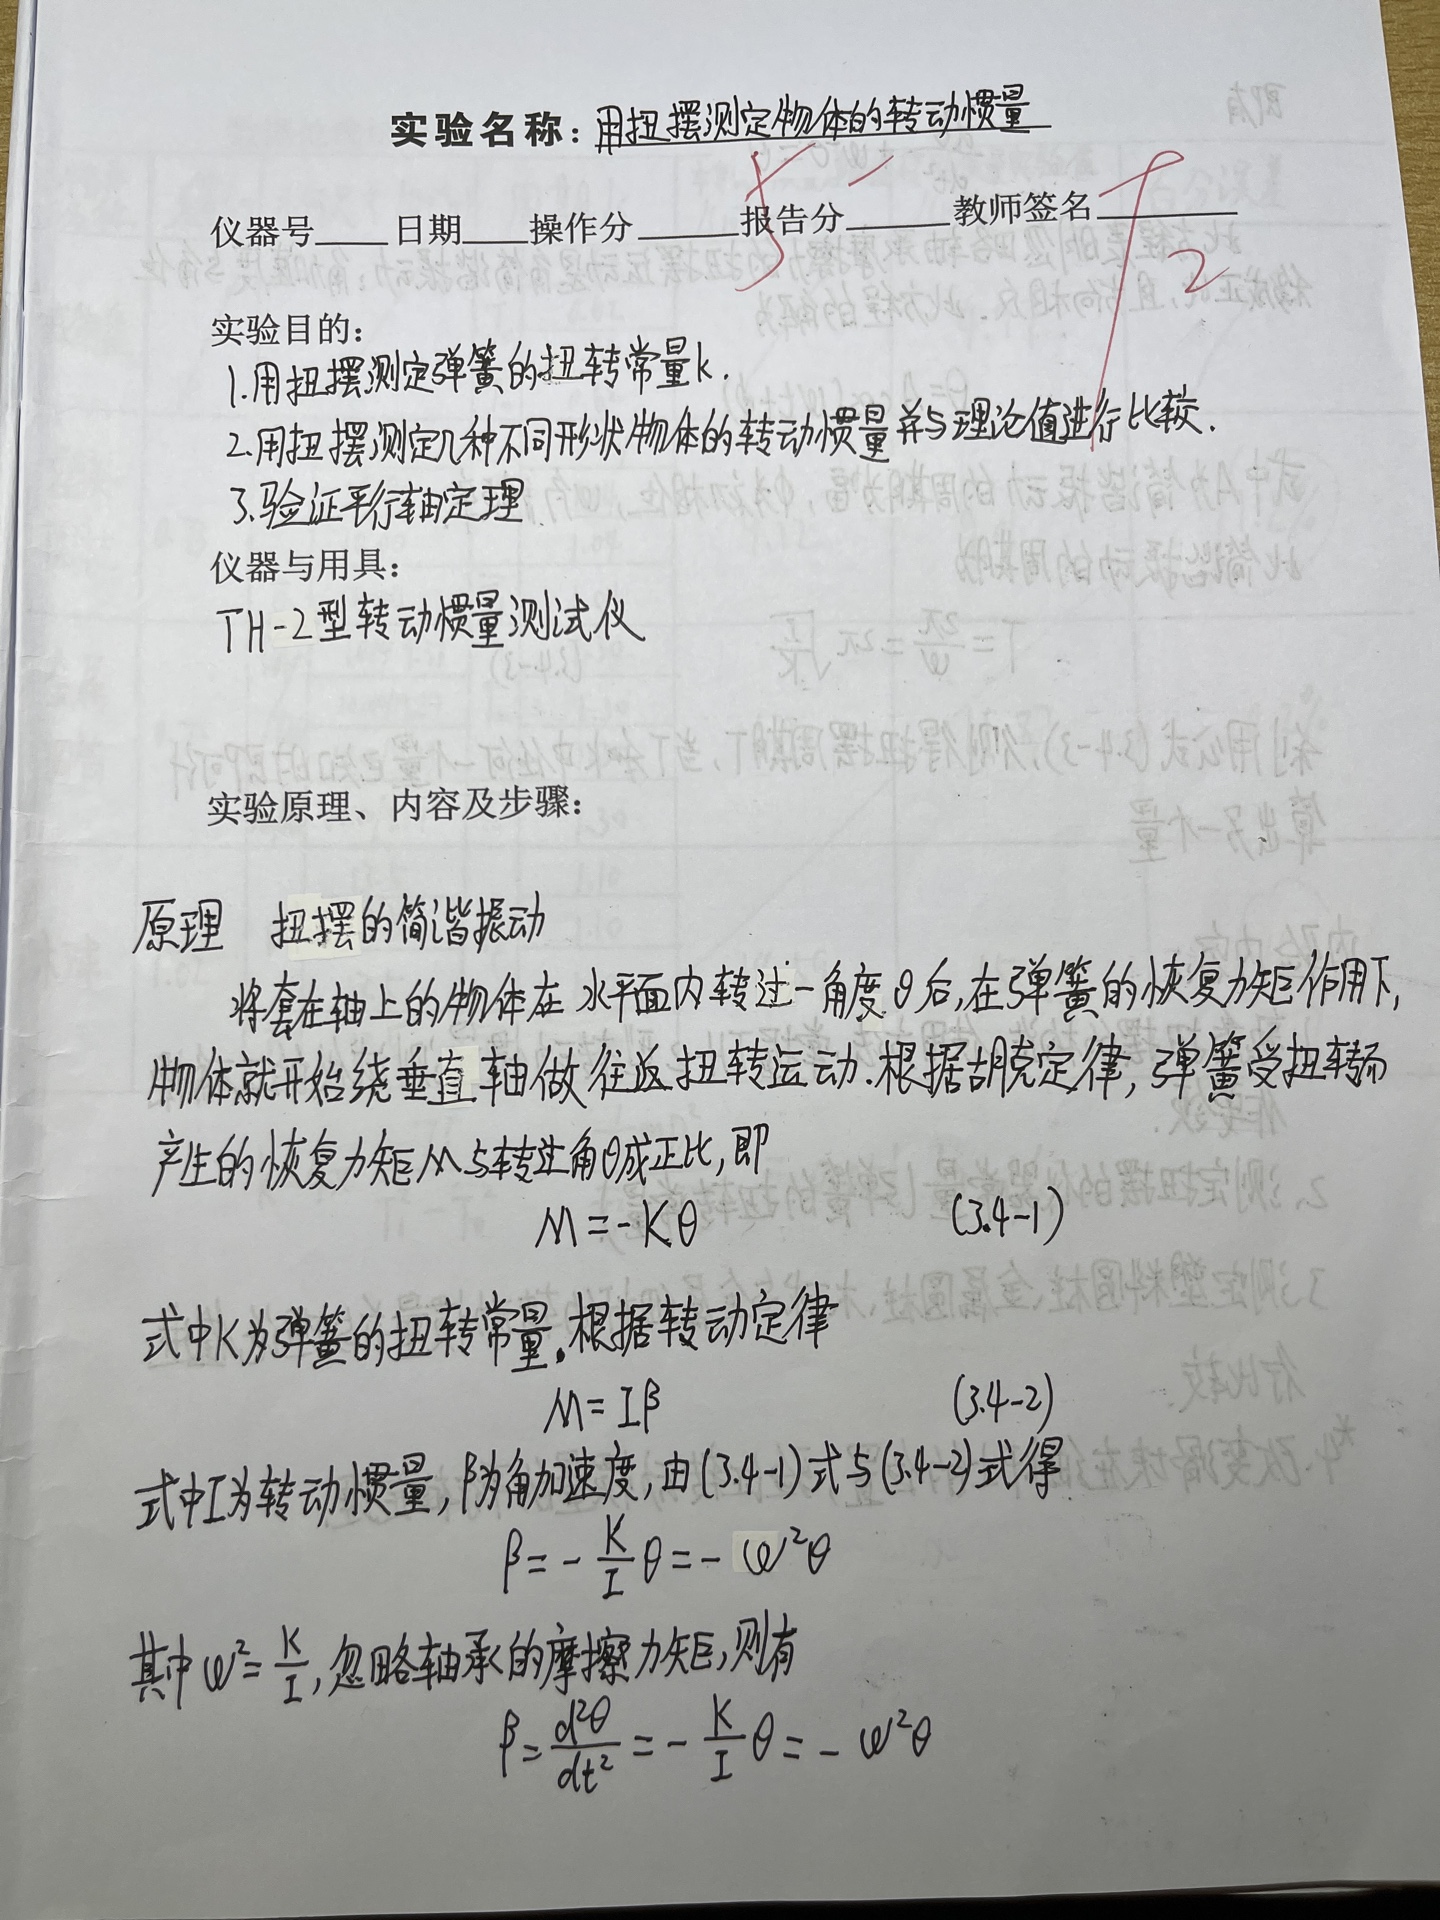 实验名称：用扭摆测定物体的转动惯量
仪器号 日期 操作分 报告分 教师签名
实验目的：
1.用扭摆测定弹簧的扭转常量k.
2.用扭摆测定几种不同形状物体的转动惯量并与理论值进行比较.
3.验证平行轴定理
仪器与用具：
TH-2型转动惯量测试仪
实验原理、内容及步骤：
原理 扭摆的简谐振动
将套在轴上的物体在水平面内转过一角度θ后,在弹簧的恢复力矩作用下,
物体就开始绕垂直轴做往返扭转运动.根据胡克定律,弹簧受扭转而
产生的恢复力矩M与转过角θ成正比,即
M=-Kθ (3.4-1)
式中K为弹簧的扭转常量。根据转动定律
M=Iβ (3.4-2)
式中I为转动惯量,β为角加速度,由(3.4-1)式与(3.4-2)式得
β=-K/I θ=-ω²θ
其中ω²=K/I,忽略轴承的摩擦力矩,则有
β=d²θ/dt²=-K/I θ=-ω²θ